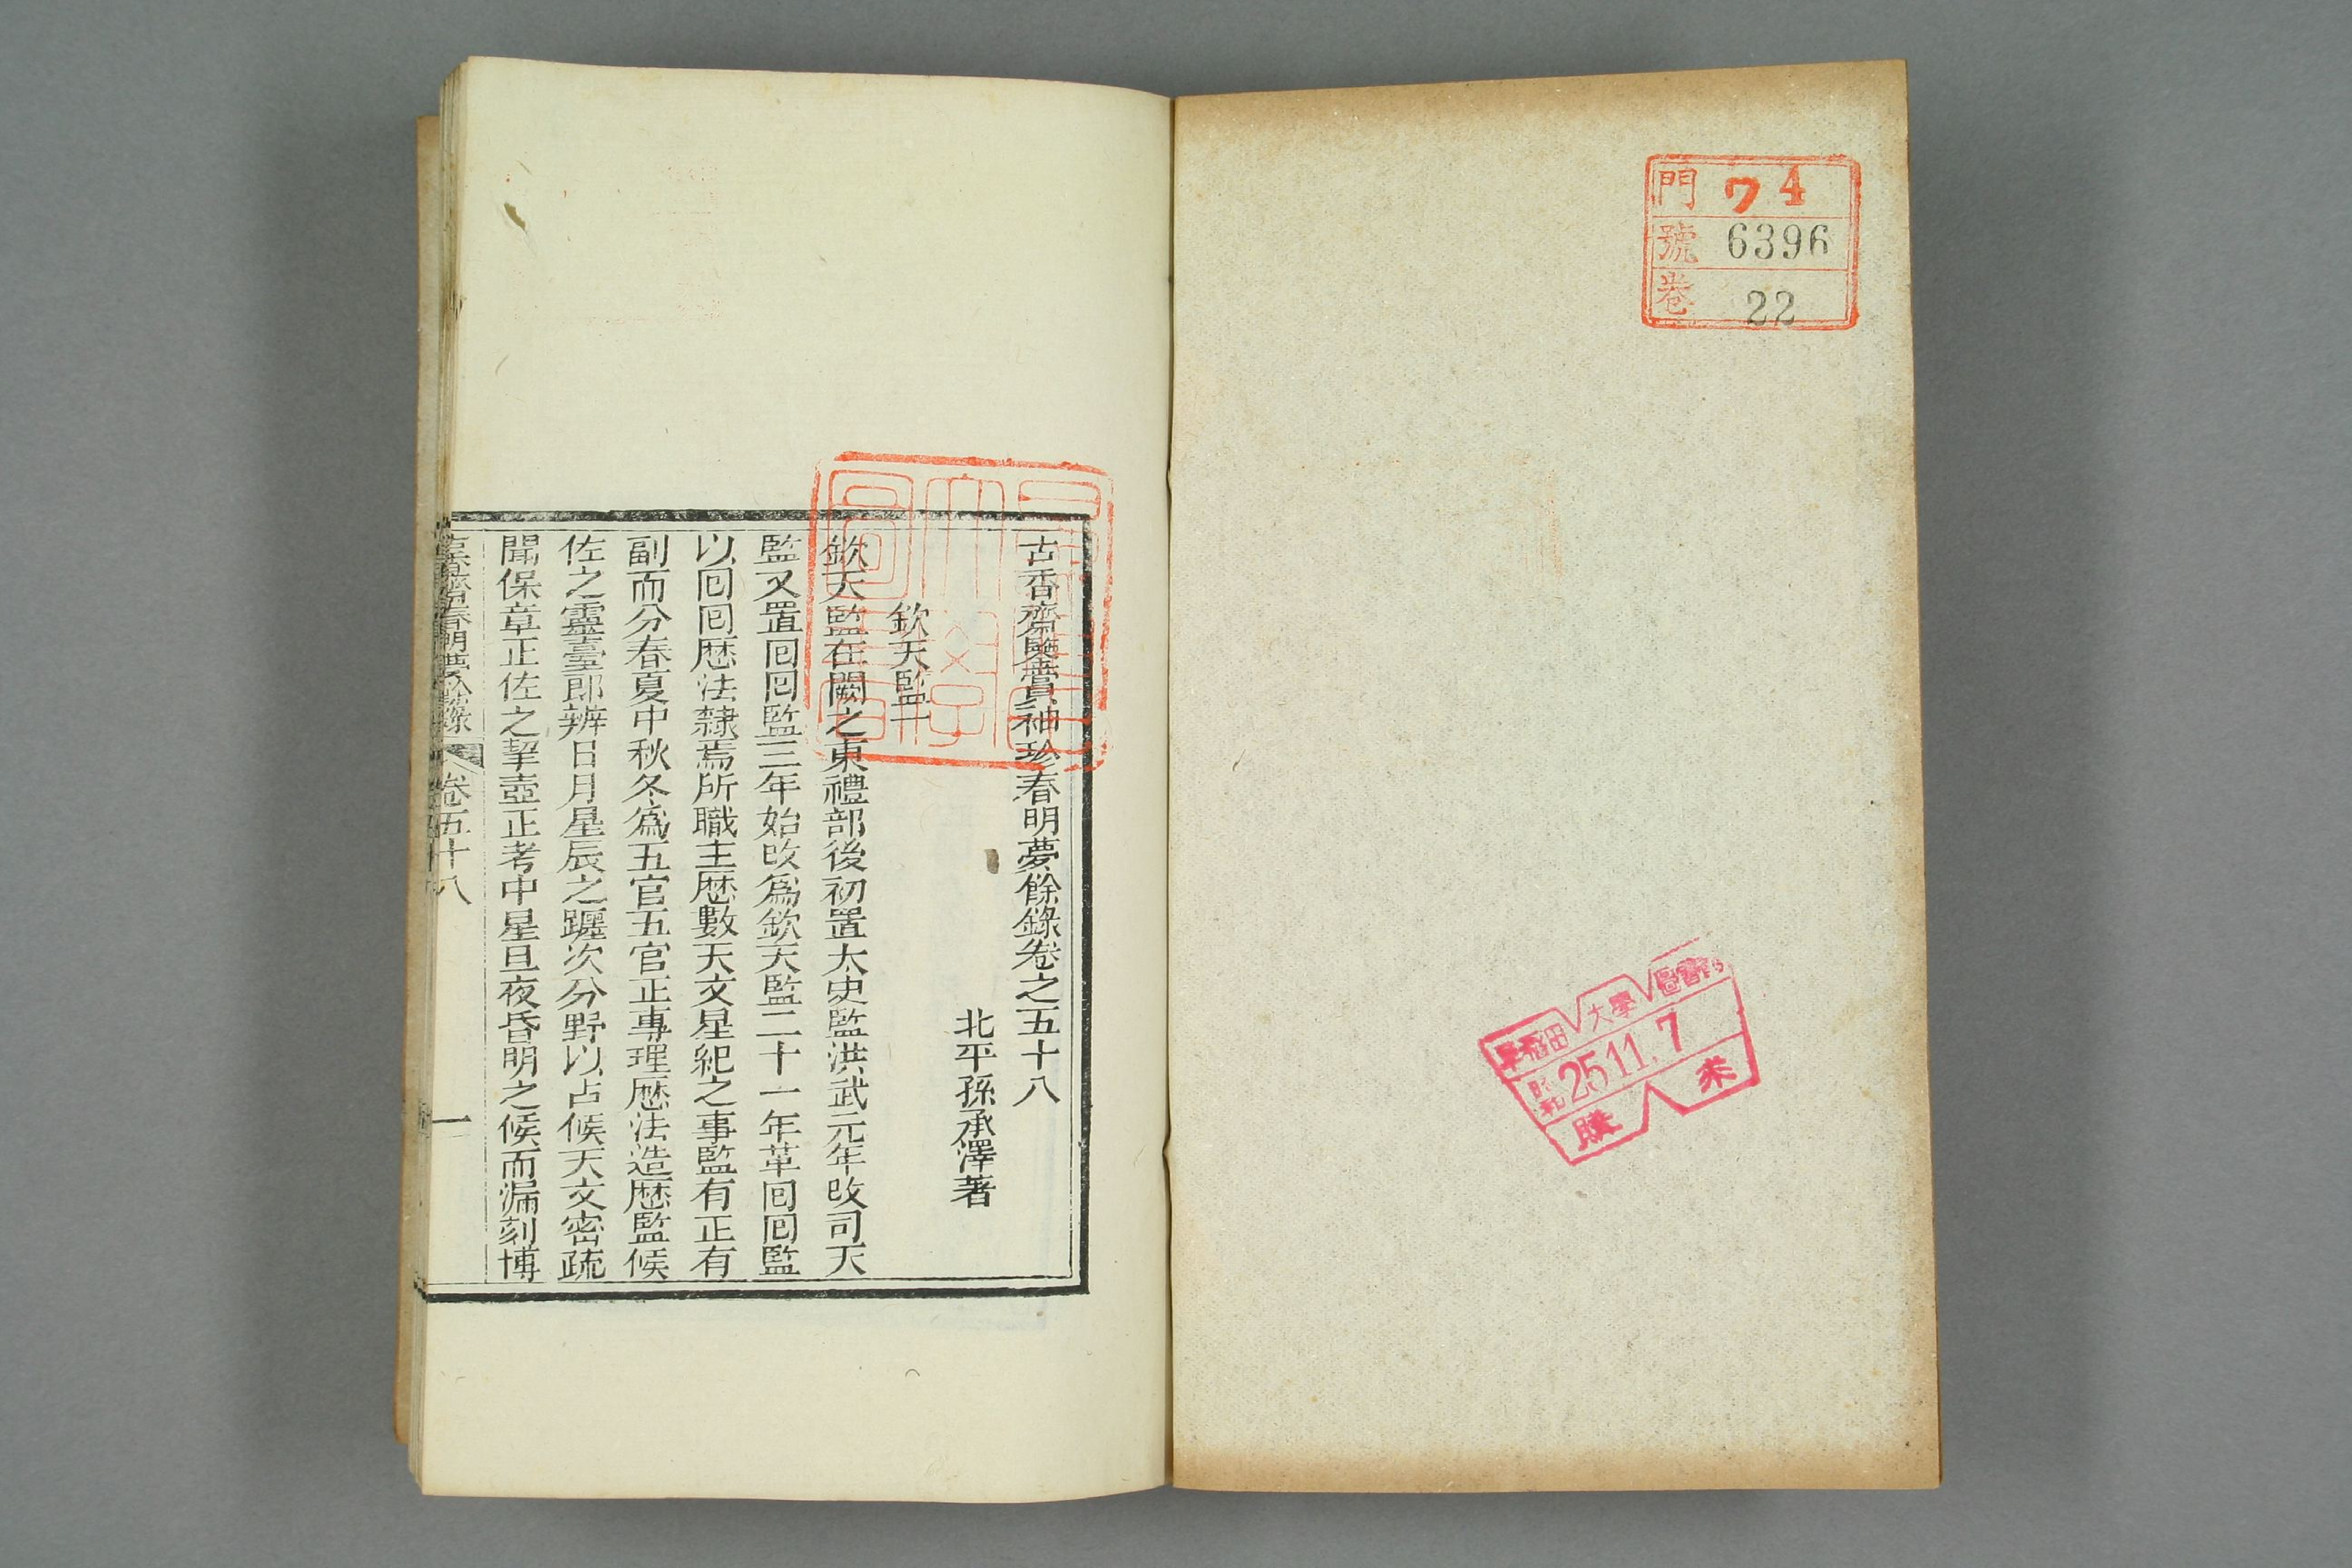 門 ワ4
號 6396
卷 22
早稻田大學圖書館
昭和 25.11.7
購求
古香齋鑒賞袖珍春明夢餘錄卷之五十八
北平孫承澤著
欽天監一
欽天監在闕之東禮部後初置太史監洪武元年改司天
監又置囘囘監三年始改爲欽天監二十一年革囘囘監
以囘囘歴法隸焉所職主歴數天文星紀之事監有正有
副而分春夏中秋冬爲五官五官正專理歴法造歴監候
佐之靈臺郎辨日月星辰之躔次分野以占候天文密疏
聞保章正佐之挈壺正考中星旦夜昏明之候而漏刻博
古香齋春明夢餘錄 卷五十八 一